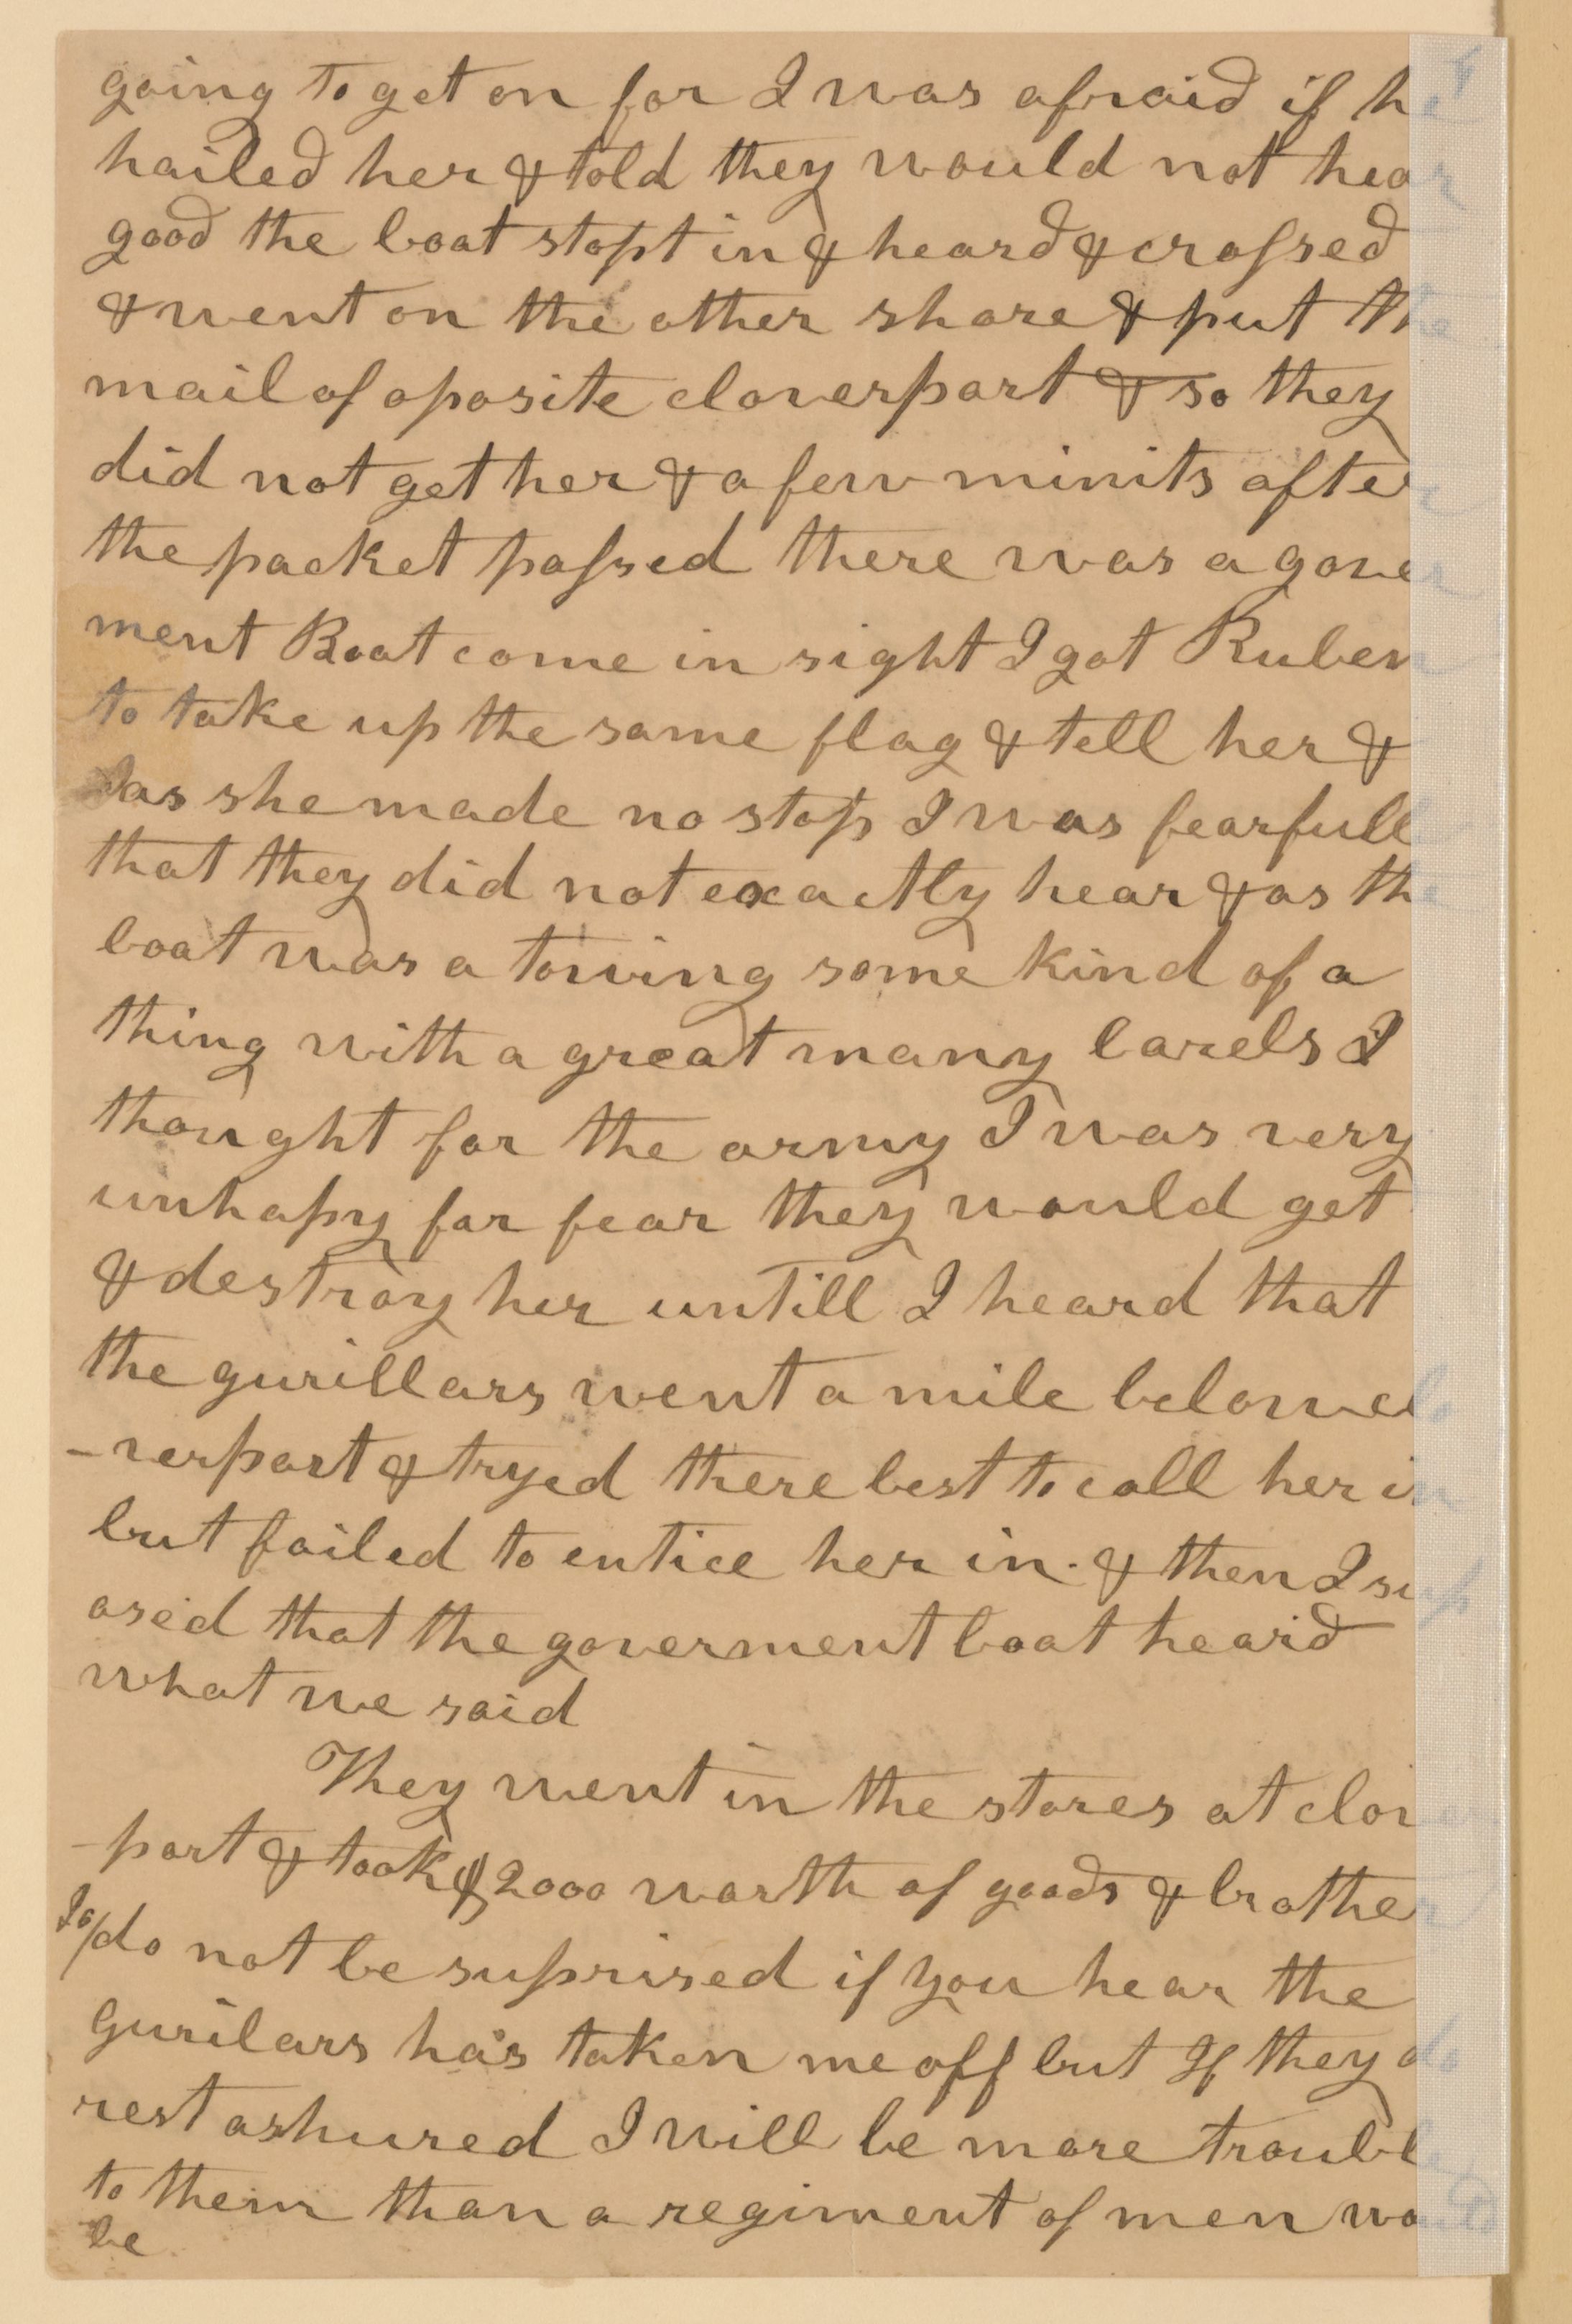 going to get on for I was afraid if he
hailed her & told they would not hear
good the boat stopt in & heard & crossed
& went on the other shore & put the
mail of oposite cloverport & so they
did not get her & a few minits after
the packet passed there was a gover
ment Boat come in sight I got Ruben
to take up the same flag & tell her &
as she made no stop I was fearfull
that they did not exactly hear & as the
boat was a towing some kind of a
thing with a great many barels I
thought for the army I was very
unhapy for fear they would get
& destroy her untill I heard that
the gurillars went a mile below clo
-verport & tryed there best to call her in
but failed to entice her in. & then I sup
osed that the goverment boat heard
what we said
They went in the stores at clover
-port & took $2000 worth of goods & brother
Jo/do not be suprised if you hear the
gurilars has taken me off but If they do
rest ashured I will be more trouble
to them than a regiment of men would
be